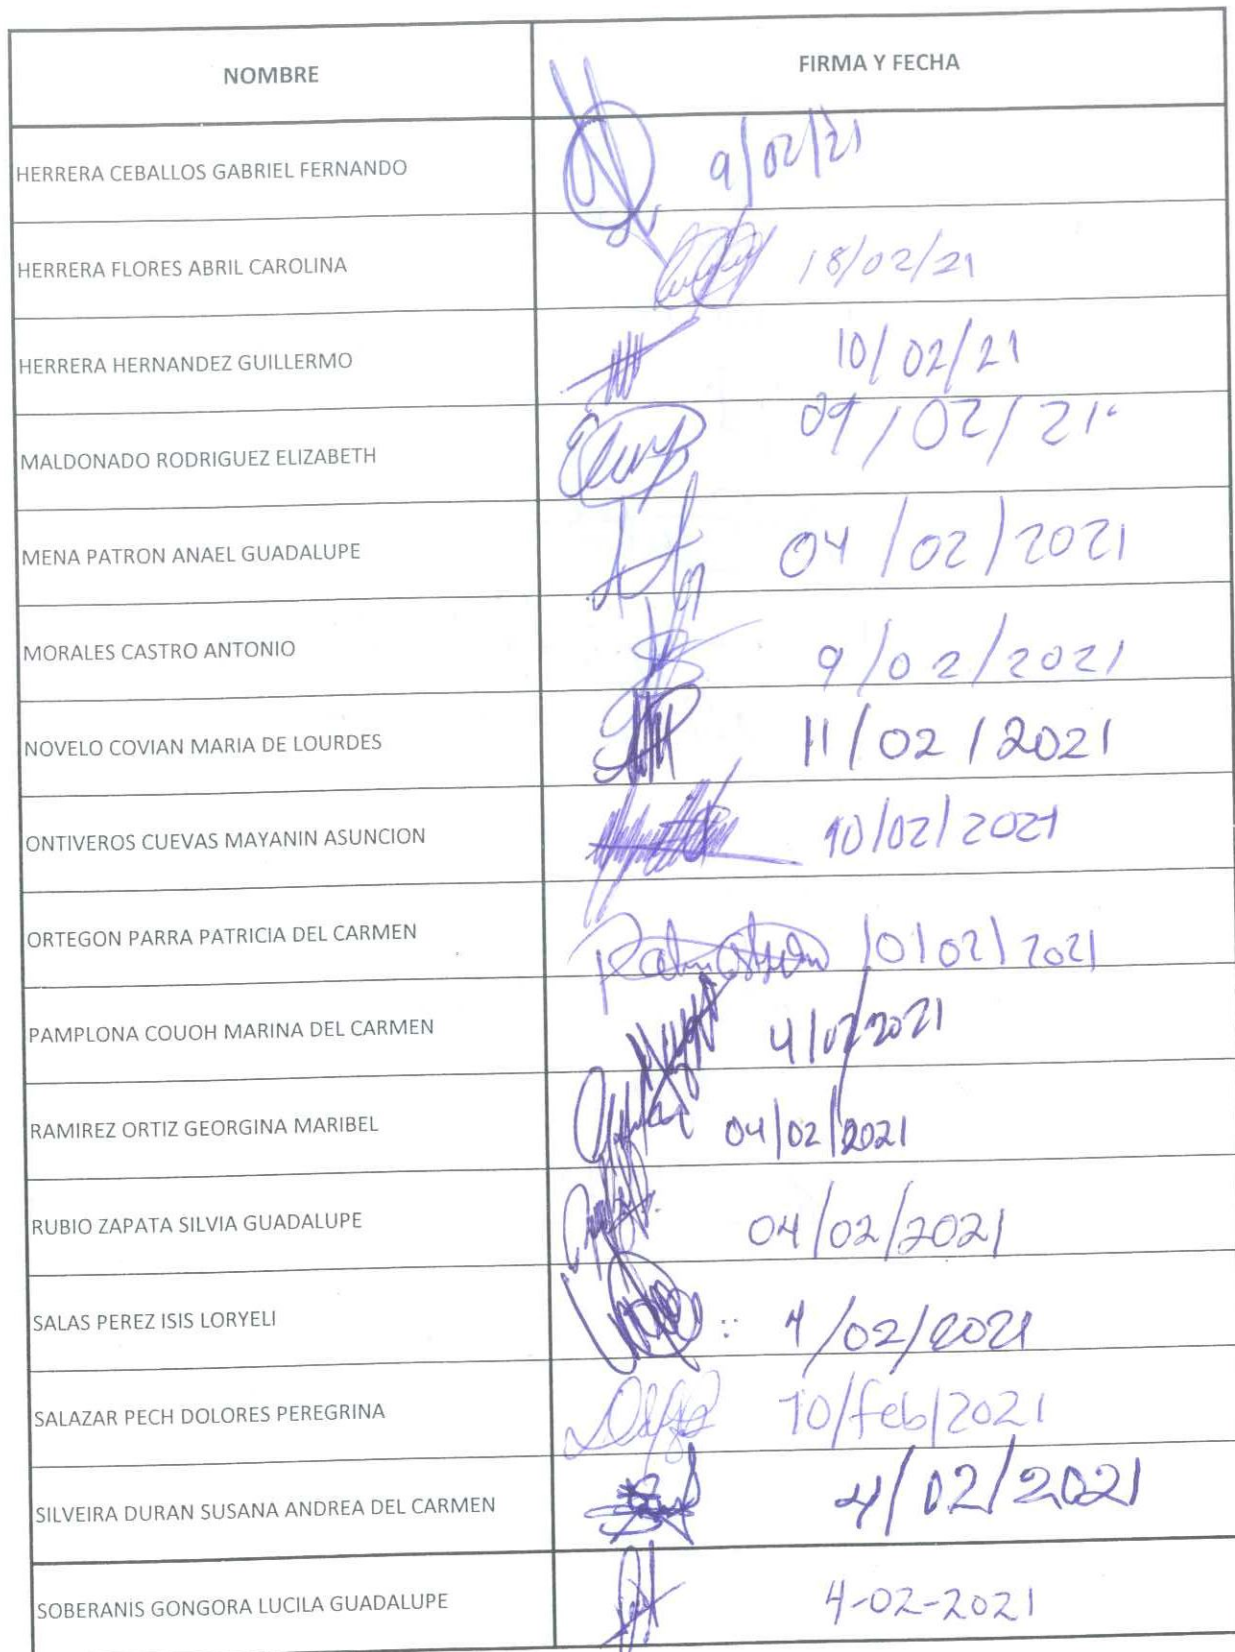 NOMBRE FIRMA Y FECHA
HERRERA CEBALLOS GABRIEL FERNANDO 9/02/21
HERRERA FLORES ABRIL CAROLINA 18/02/21
HERRERA HERNANDEZ GUILLERMO 10/02/21
MALDONADO RODRIGUEZ ELIZABETH 09/02/21
MENA PATRON ANAEL GUADALUPE 04/02/2021
MORALES CASTRO ANTONIO 9/02/2021
NOVELO COVIAN MARIA DE LOURDES 11/02/2021
ONTIVEROS CUEVAS MAYANIN ASUNCION 10/02/2021
ORTEGON PARRA PATRICIA DEL CARMEN 10/02/2021
PAMPLONA COUOH MARINA DEL CARMEN 4/02/2021
RAMIREZ ORTIZ GEORGINA MARIBEL 04/02/2021
RUBIO ZAPATA SILVIA GUADALUPE 04/02/2021
SALAS PEREZ ISIS LORYELI 4/02/2021
SALAZAR PECH DOLORES PEREGRINA 10/feb/2021
SILVEIRA DURAN SUSANA ANDREA DEL CARMEN 4/02/2021
SOBERANIS GONGORA LUCILA GUADALUPE 4-02-2021